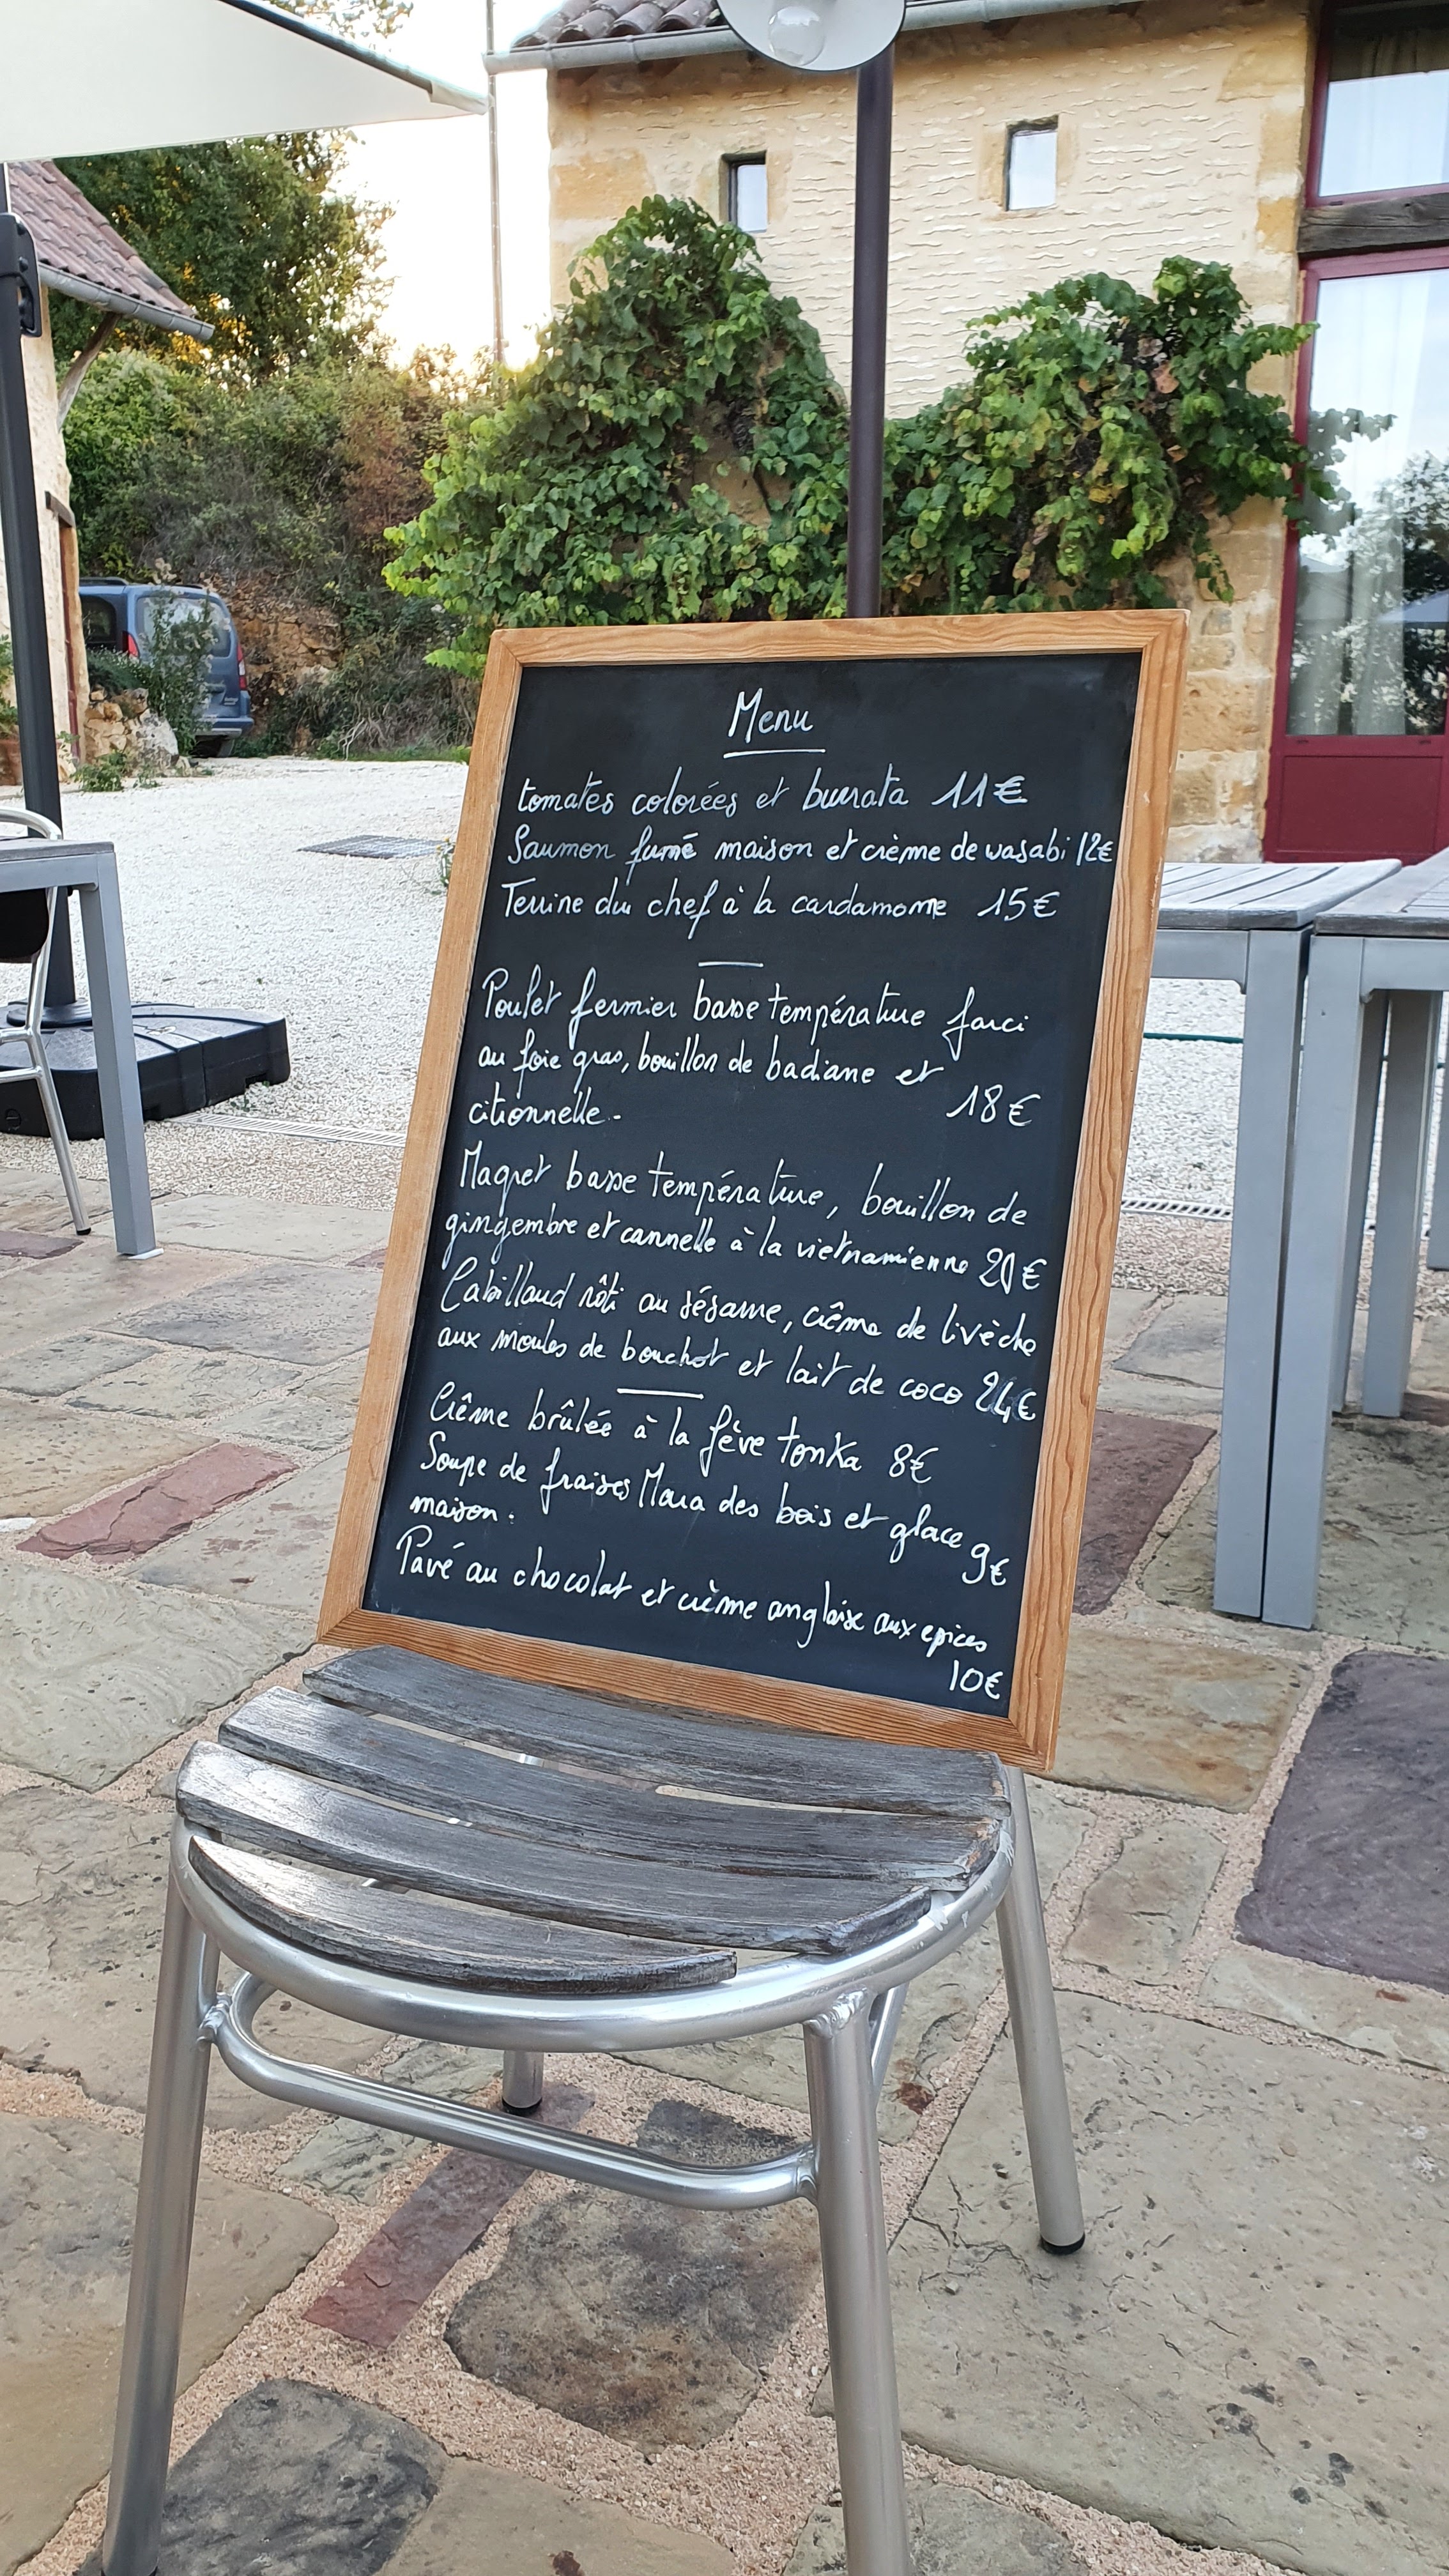 Menu
tomates colorées et burrata 11€
Saumon fumé maison et crème de wasabi 12€
Terrine du chef à la cardamome 15€
Poulet fermier basse température farci
au foie gras, bouillon de badiane et
citronnelle. 18€
Magret basse température, bouillon de
gingembre et cannelle à la vietnamienne 20€
Cabillaud rôti au sésame, crême de livèche
aux moules de bouchot et lait de coco 24€
Crême brûlée à la fève tonka 8€
Soupe de fraises Mara des bois et glace
maison. 9€
Pavé au chocolat et crème anglaise aux epices
10€